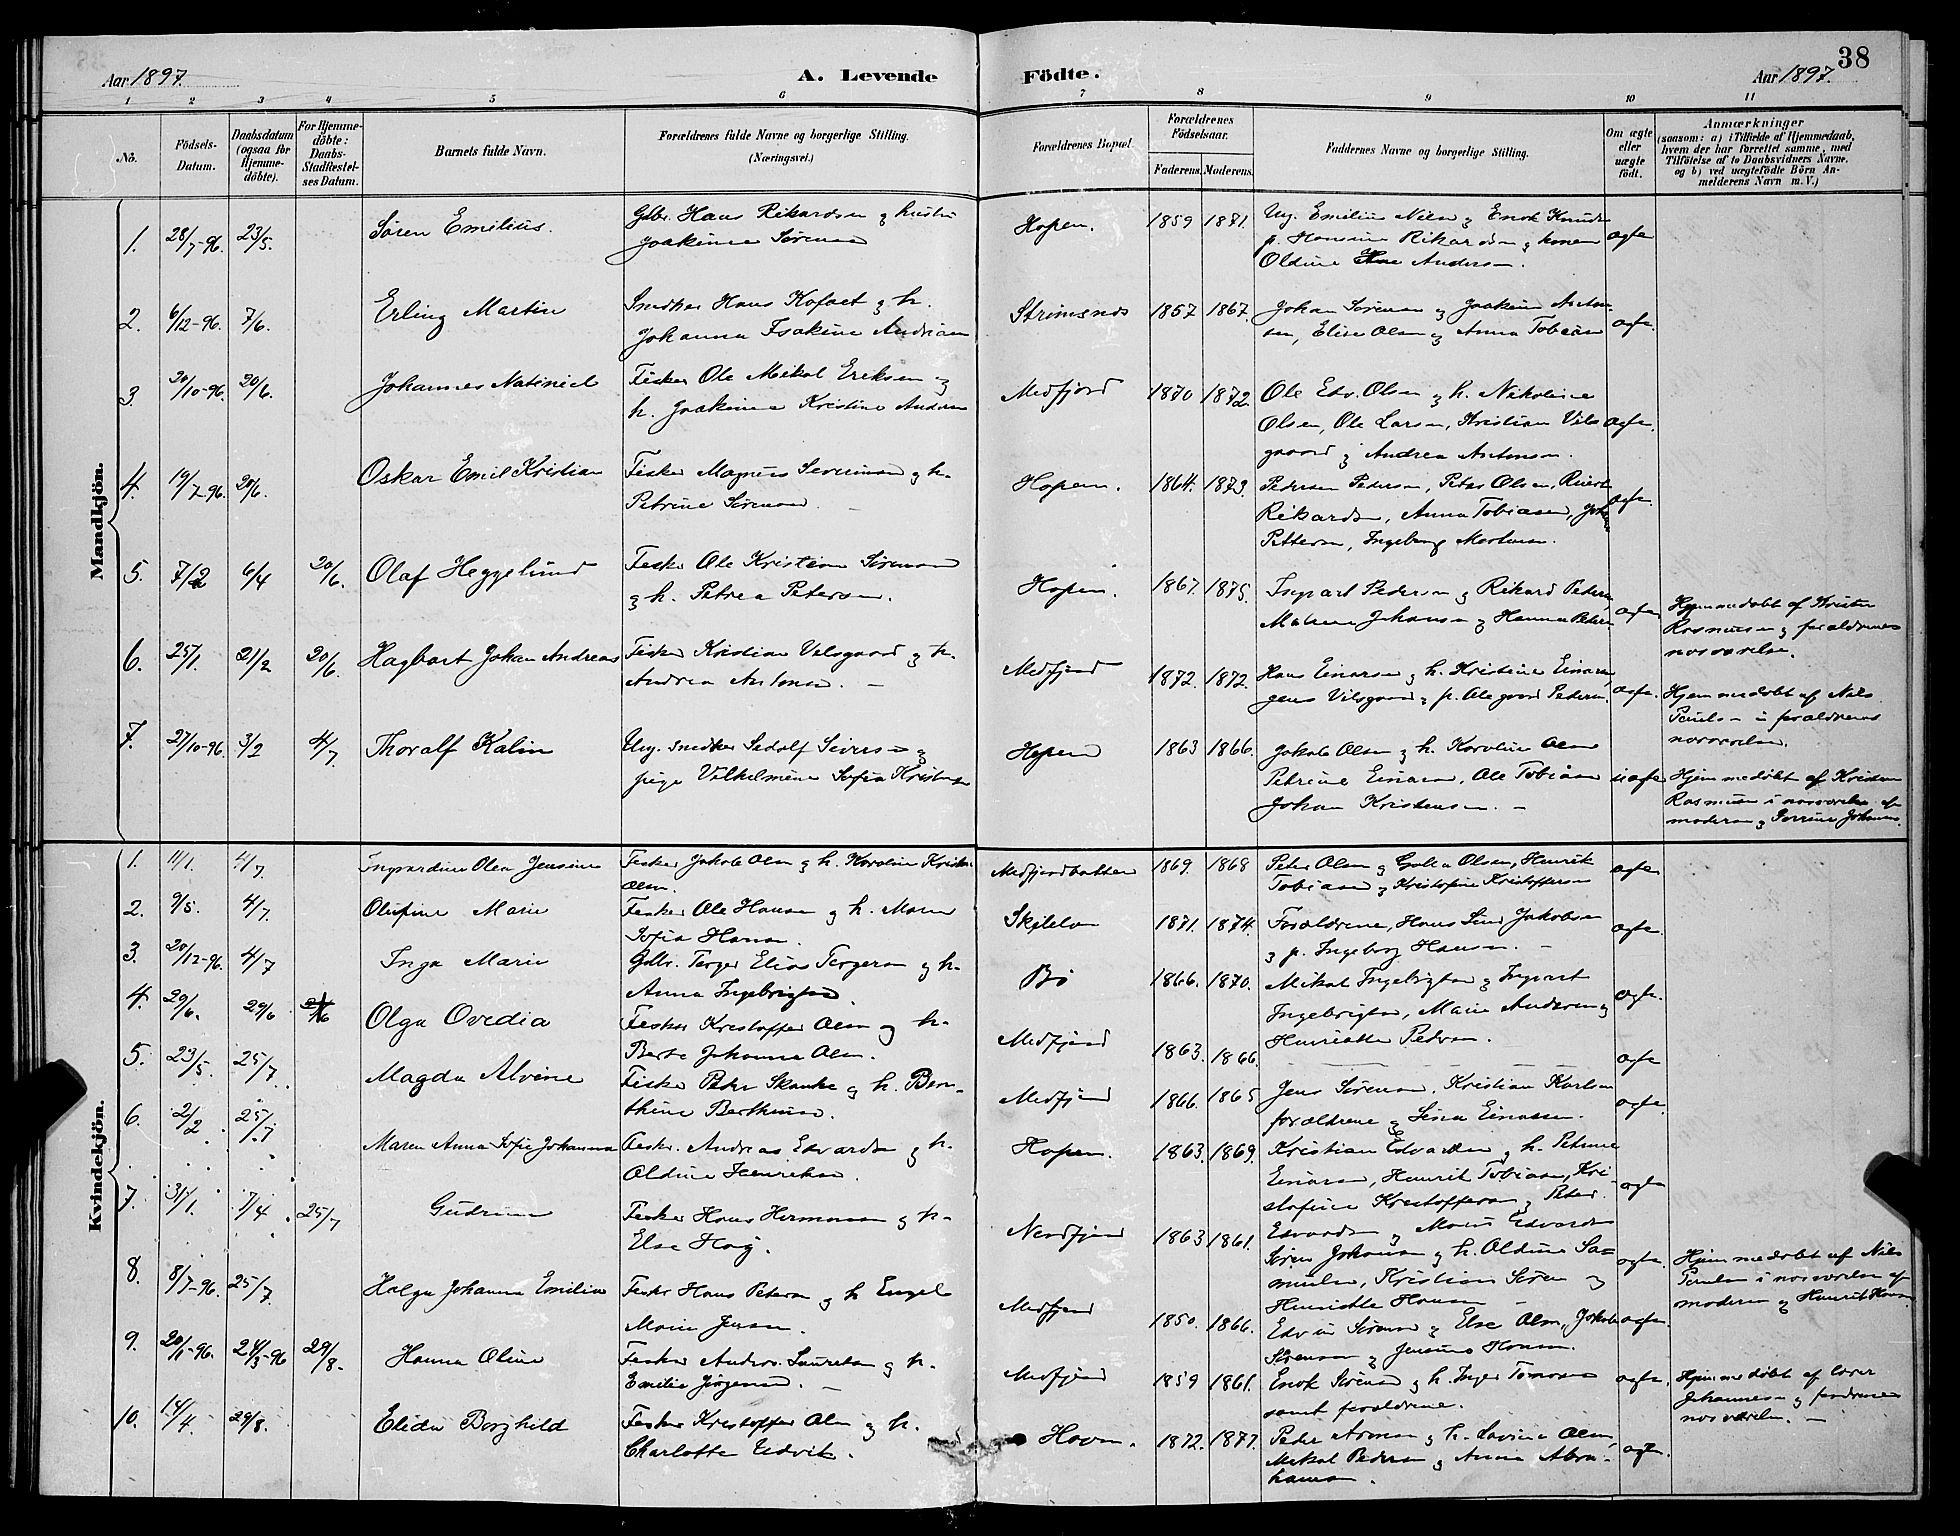 38
Aar 1897.
A. Levende Födte.
Aar 1897.
1 2 3 4 5 6 7 8 9 10 11
No.
Födsels-Datum.
Daabsdatum (ogsaa for Hjemmedöbte).
For Hjemmedöbte: Daabs-Stadfestelses Datum.
Barnets fulde Navn.
Forældrenes fulde Navne og borgerlige Stilling.
(Næringsvei.)
Forældrenes Bopæl.
Forældrenes Födselsaar.
Faderens. Moderens.
Faddernes Navne og borgerlige Stilling.
Om ægte eller uægte födt.
Anmærkninger
(saasom: a) i Tilfælde af Hjemmedaab, hvem der har forrettet samme, med Tilföielse af to Daabsvidners Navne, og b) ved uægtefödte Börn Anmelderens Navn m. V.)
Mandkjön.
1. 28/7-96. 23/5. Søren Emilius. Gdbr. Hans Rikardsen og hustru
Joakime Sørensen
Hopen. 1859 1871. Ung. Emilius Nilsen og Enok
p. Hansine Rikardsen og konen
Oldine Andersen. ægte
2. 6/12-96. 7/6. Erling Martin Snedker Hans Kofoet og h.
Johanna Isakine
Strømsnes 1857 1867. Johan Sørensen og Joakim
Elise Olsen og Anna Tobiasen ægte.
3. 30/10-96. 20/6. Johannes Natiniel Fisker Ole Mikal Eriksen og
h. Joakime Kristine
Medfjord 1870 1872. Ole Edv. Olsen og h. Nikoline
Olsen, Ole Larsen, Kristian Vilsgaard og Andrea Antonsen. ægte.
4. 19/7-96. 20/6. Oskar Emil Kristian Fisker Magnus Severinsen og h.
Petrine Sørensen.
Hopen. 1864. 1873. Pedersen, Peter Olsen,
Rikardsen, Anna Tobiasen,
Pettersen, Ingeborg ægte.
5. 7/2 6/4 20/6. Olaf Heggelund Fisker Ole Kristian Sørensen
og h. Petrea Petersen.
Hopen. 1867. 1875. Ingvart Pedersen og Rikard Pedersen,
Johansen og Hanna ægte
Hjemmedøbt af Kristen
Rasmussen og forældrenes
nærværelse.
6. 25/1. 21/2 20/6. Hagbart Johan Andreas Fisker Kristian Vilsgaard og h.
Andrea Antonsen.
Medfjord 1872. 1872. Hans Einarsen og h. Kristine Einarsen,
Jens Vilsgaard og p. Pedersen. ægte.
Hjemmedøbt af Nils
i forældrenes
nærværelse.
7. 27/10-96. 3/2 4/7 Thoralf Kalin Ung. snedker Sedolf og
pige Vilhelmine Sofia
Hopen 1863 1866. Jakob Olsen og h. Karoline Olsen
Petrine Einarsen, Ole Tobiasen
Johan Kristensen. uægte
Hjemmedøbt af Kristen
Rasmussen i nærværelse af
moderen og
Kvindekjön.
1. 11/1. 4/7. Ingvardine Olea Jensine Fisker Jakob Olsen og h. Karoline
Olsen.
Medfjordbotten 1869. 1868 Peter Olsen og Olsen, Henrik
Tobiasen og Kristofine Kristoffersen ægte
2. 9/5. 4/7. Olufine Marie Fisker Ole Hansen og h. Maren
Sofia Hansen.
1871. 1874. Forældrene, Hans Jakobsen
og p. Ingeborg Hansen. ægte.
3. 20/12-96. 4/7 Inga Marie Gdbr. Torger Elias Torgersen og h.
Anna Ingebrigtsen.
Bø 1866. 1870. Mikal Ingebrigtsen og Ingvart
Ingebrigtsen, Marie Andersen og
Henriette Pedersen. ægte.
4. 29/6. 29/6 Olga Ovedia Fisker Kristoffer Olsen og h.
Johanna Olsen.
Medfjord 1863. 1866. ægte
5. 23/5. 25/7. Magda Alvine Fisker Peter Skanke og h. Berthine Berthinsen.
Medfjord 1866. 1865 Jens Sørensen, Kristian
forældrene og Einarsen. ægte.
6. 2/2. 25/7 Maren Anna Sofie Johanna Andreas Edvardsen og h.
Oldine Henriksen.
Hopen. 1863. 1869. Kristian Edvardsen og h. Petrine
Einarsen, Henrik Tobiasen, Kristofine Kristoffersen og Peter
Edvardsen og Edvardsen ægte
7. 31/1. 1/4. 25/7 Gudrun Fisker Hans Hermansen og h.
Else
1863 1861. Søren Johansen og h. Oldine Samuelsen, Kristian Søren og
Henriette Hansen ægte.
Hjemmedøbt af Nils
i nærværelse af
moderen og Henrik
8. 8/7-96. 25/7. Helga Johanna Emilie Fisker Hans Petersen og h. Engel
Marie Jensen.
Medfjord 1850. 1866. Edvin Sørensen og Else Olsen, Jakob
Sørensen og Hansen. ægte.
9. 20/1-96. 24/3-96 29/8. Hanna Oline Fisker Andreas Lauritsen og h.
Emilie Jørgensen.
Medfjord 1859 1861. Enok Sørensen og h. Inger
samt forældrene. ægte.
Hjemmedøbt af lærer
Johannesen og forældrenes
nærværelse.
10. 14/4. 29/8. Elida Borghild Fisker Kristoffer Olsen og h.
Charlotte Edvik.
Havn. 1872. 1877. Peter og h. Lovina Olsen,
Mikal Pedersen og Anna Abrahamsen. ægte.